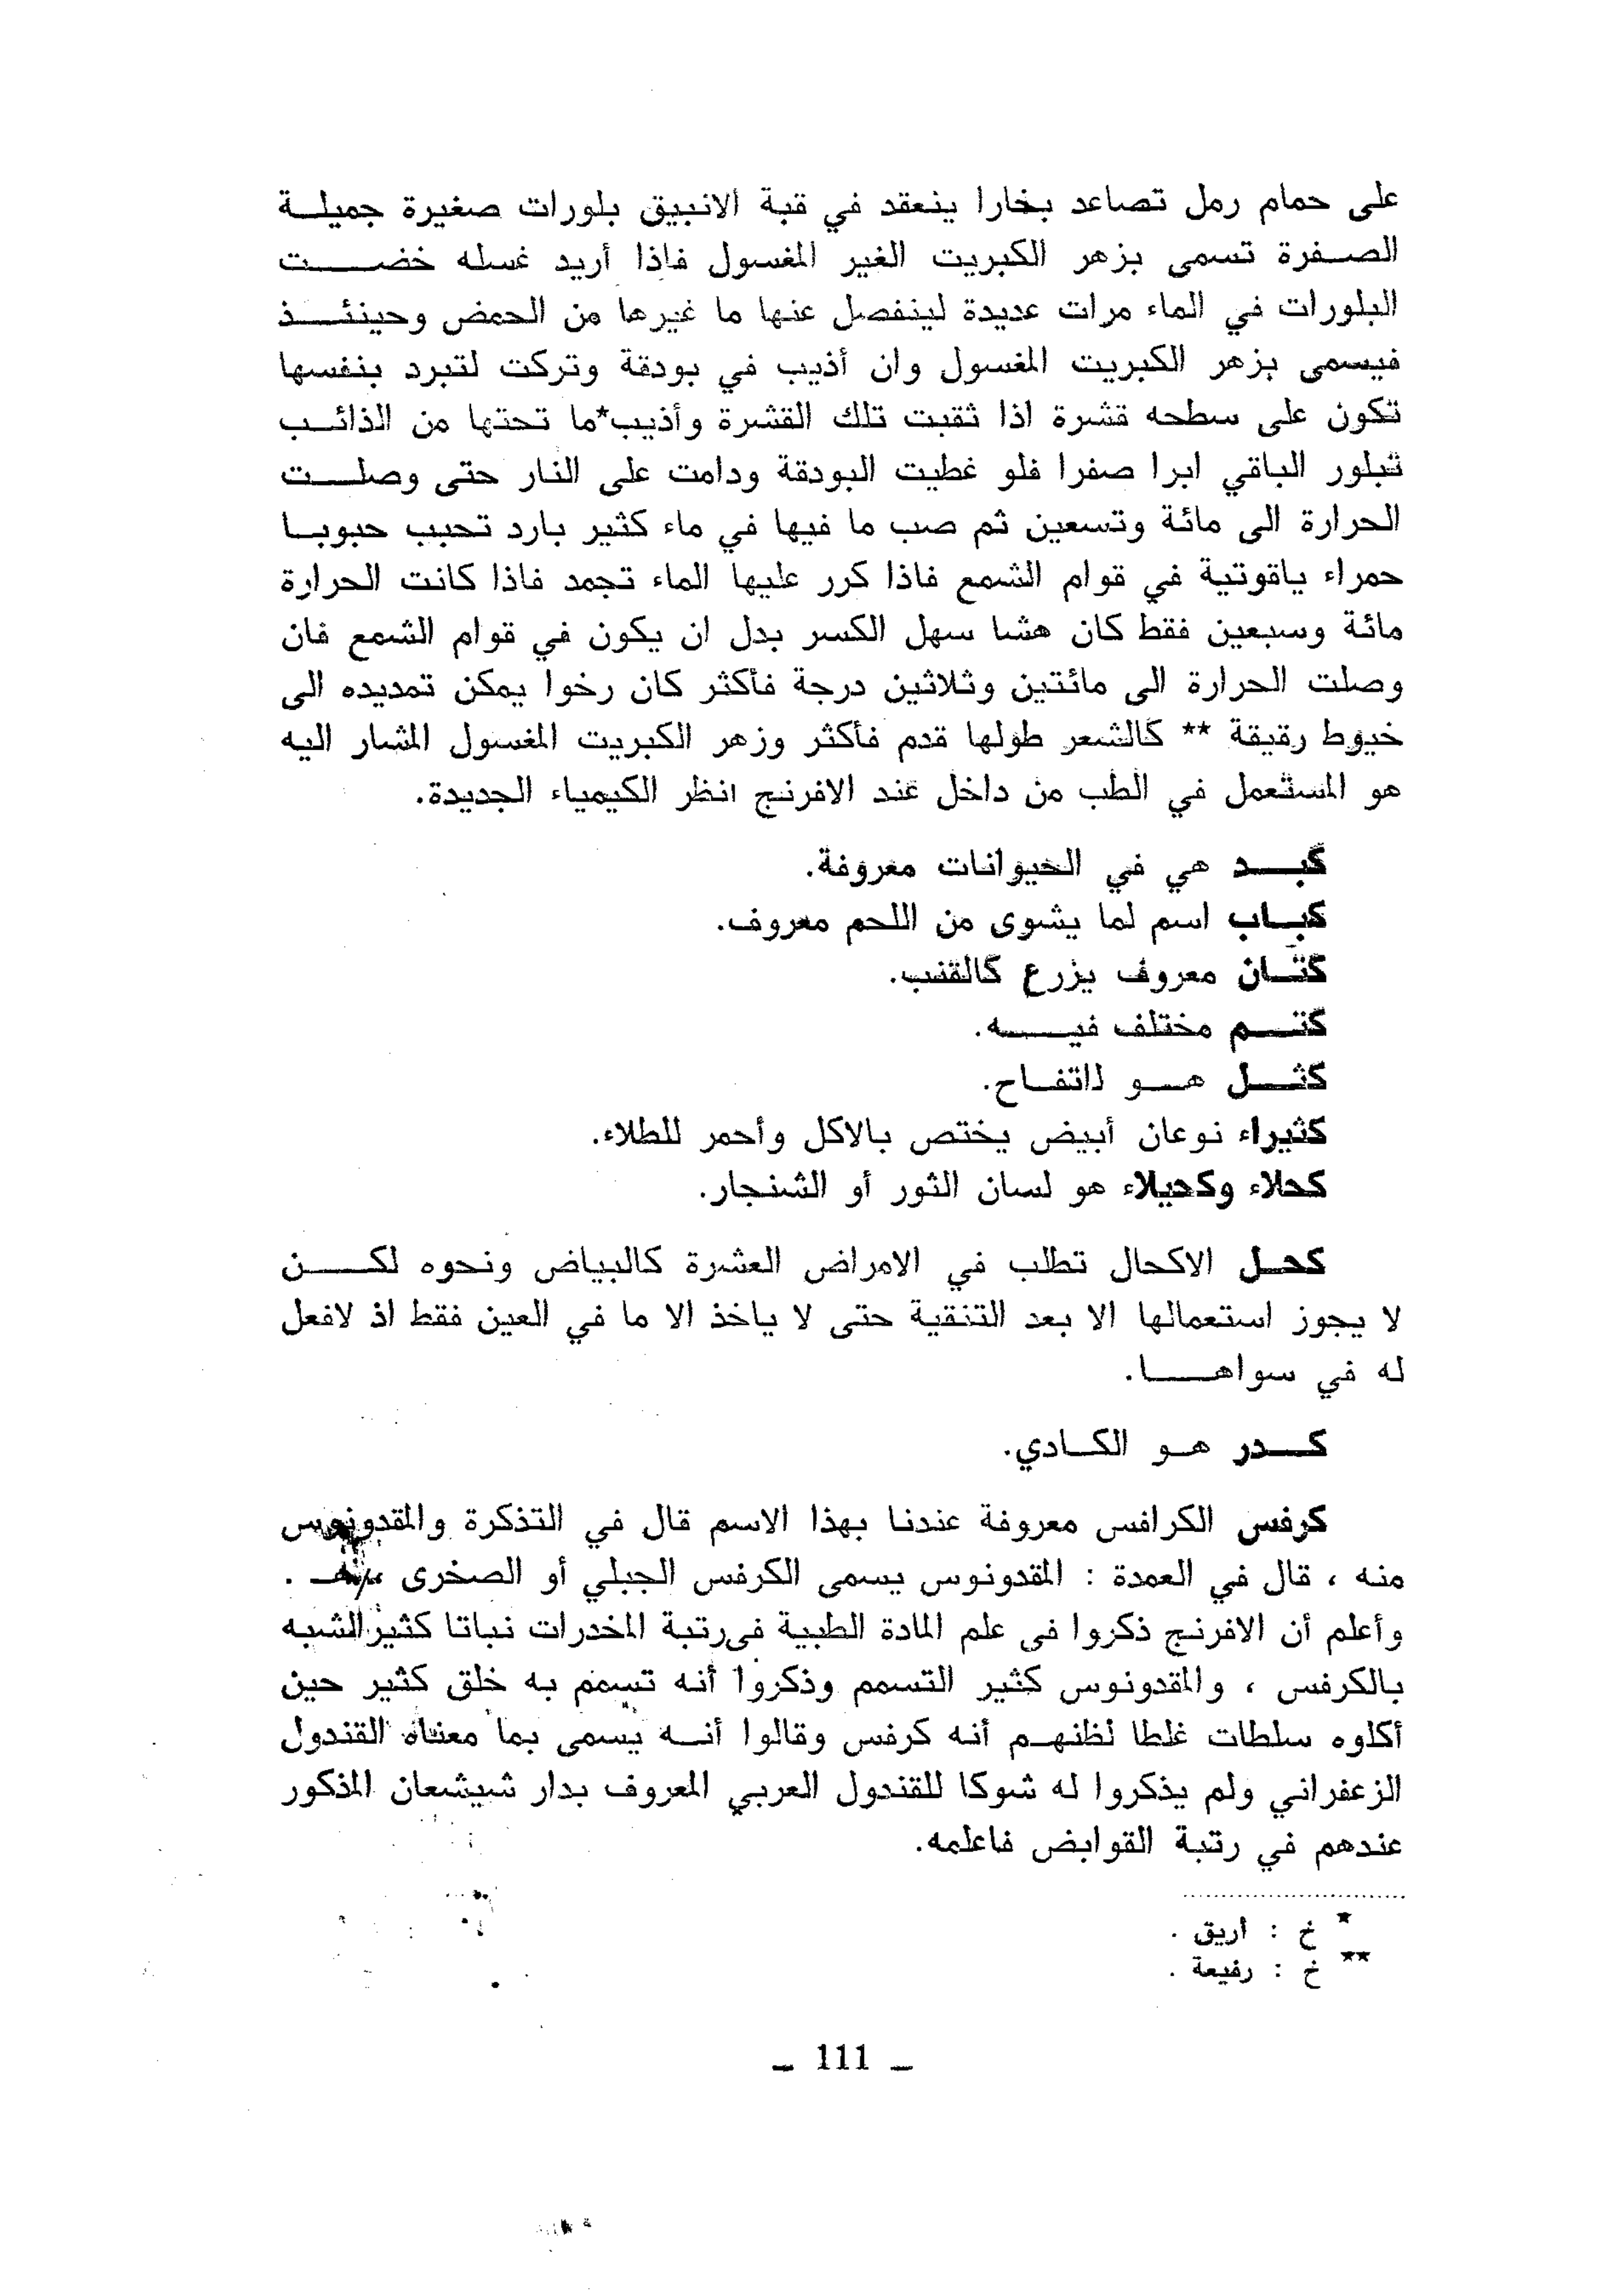 على حمام رمل تصاعد بخارا ينعقد في قبة الانبيق بلورات صغيرة جميلة
الصفرة تسمى بزهر الكبريت الغير المغسول فاذا أريد غسله خضت
البلورات في الماء مرات عديدة لينفصل عنها ما غيرها من الحمض وحينئذ
فيسمى بزهر الكبريت المغسول وان أذيب في بودقة وتركت لتبرد بنفسها
تكون على سطحه قشرة اذا ثقبت تلك القشرة وأذيب*ما تحتها من الذائب
تبلور الباقي ابرا صفرا فلو غطيت البودقة ودامت على النار حتى وصلت
الحرارة الى مائة وتسعين ثم صب ما فيها في ماء كثير بارد تحبب حبوبا
حمراء ياقوتية في قوام الشمع فاذا كرر عليها الماء تجمد فاذا كانت الحرارة
مائة وسبعين فقط كان هشا سهل الكسر بدل ان يكون في قوام الشمع فان
وصلت الحرارة الى مائتين وثلاثين درجة فأكثر كان رخوا يمكن تمديده الى
خيوط رقيقة ** كالشعر طولها قدم فأكثر وزهر الكبريت المغسول المشار اليه
هو المستعمل في الطب من داخل عند الافرنج انظر الكيمياء الجديدة.
كبد هي في الحيوانات معروفة.
كباب اسم لما يشوى من اللحم معروف.
كتان معروف يزرع كالقنب.
كتم مختلف فيه.
كثل هو لاتفاح.
كثيراء نوعان أبيض يختص بالاكل وأحمر للطلاء.
كحلاء وكحيلاء هو لسان الثور أو الشنجار.
كحل الاكحال تطلب في الامراض العشرة كالبياض ونحوه لكن
لا يجوز استعمالها الا بعد التنقية حتى لا ياخذ الا ما في العين فقط اذ لافعل
له في سواها.
كدر هو الكادي.
كرفس الكرافس معروفة عندنا بهذا الاسم قال في التذكرة والمقدونوس
منه ، قال في العمدة : المقدونوس يسمى الكرفس الجبلي أو الصخرى .
وأعلم أن الافرنج ذكروا فى علم المادة الطبية فى رتبة المخدرات نباتا كثير الشبه
بالكرفس ، والمقدونوس كثير التسمم وذكروا أنه تسمم به خلق كثير حين
أكلوه سلطات غلطا لظنهم أنه كرفس وقالوا أنه يسمى بما معناه القندول
الزعفراني ولم يذكروا له شوكا للقندول العربي المعروف بدار شيشعان المذكور
عندهم في رتبة القوابض فاعلمه.
* خ : أريق .
** خ : رفيعة .
_ 111 _